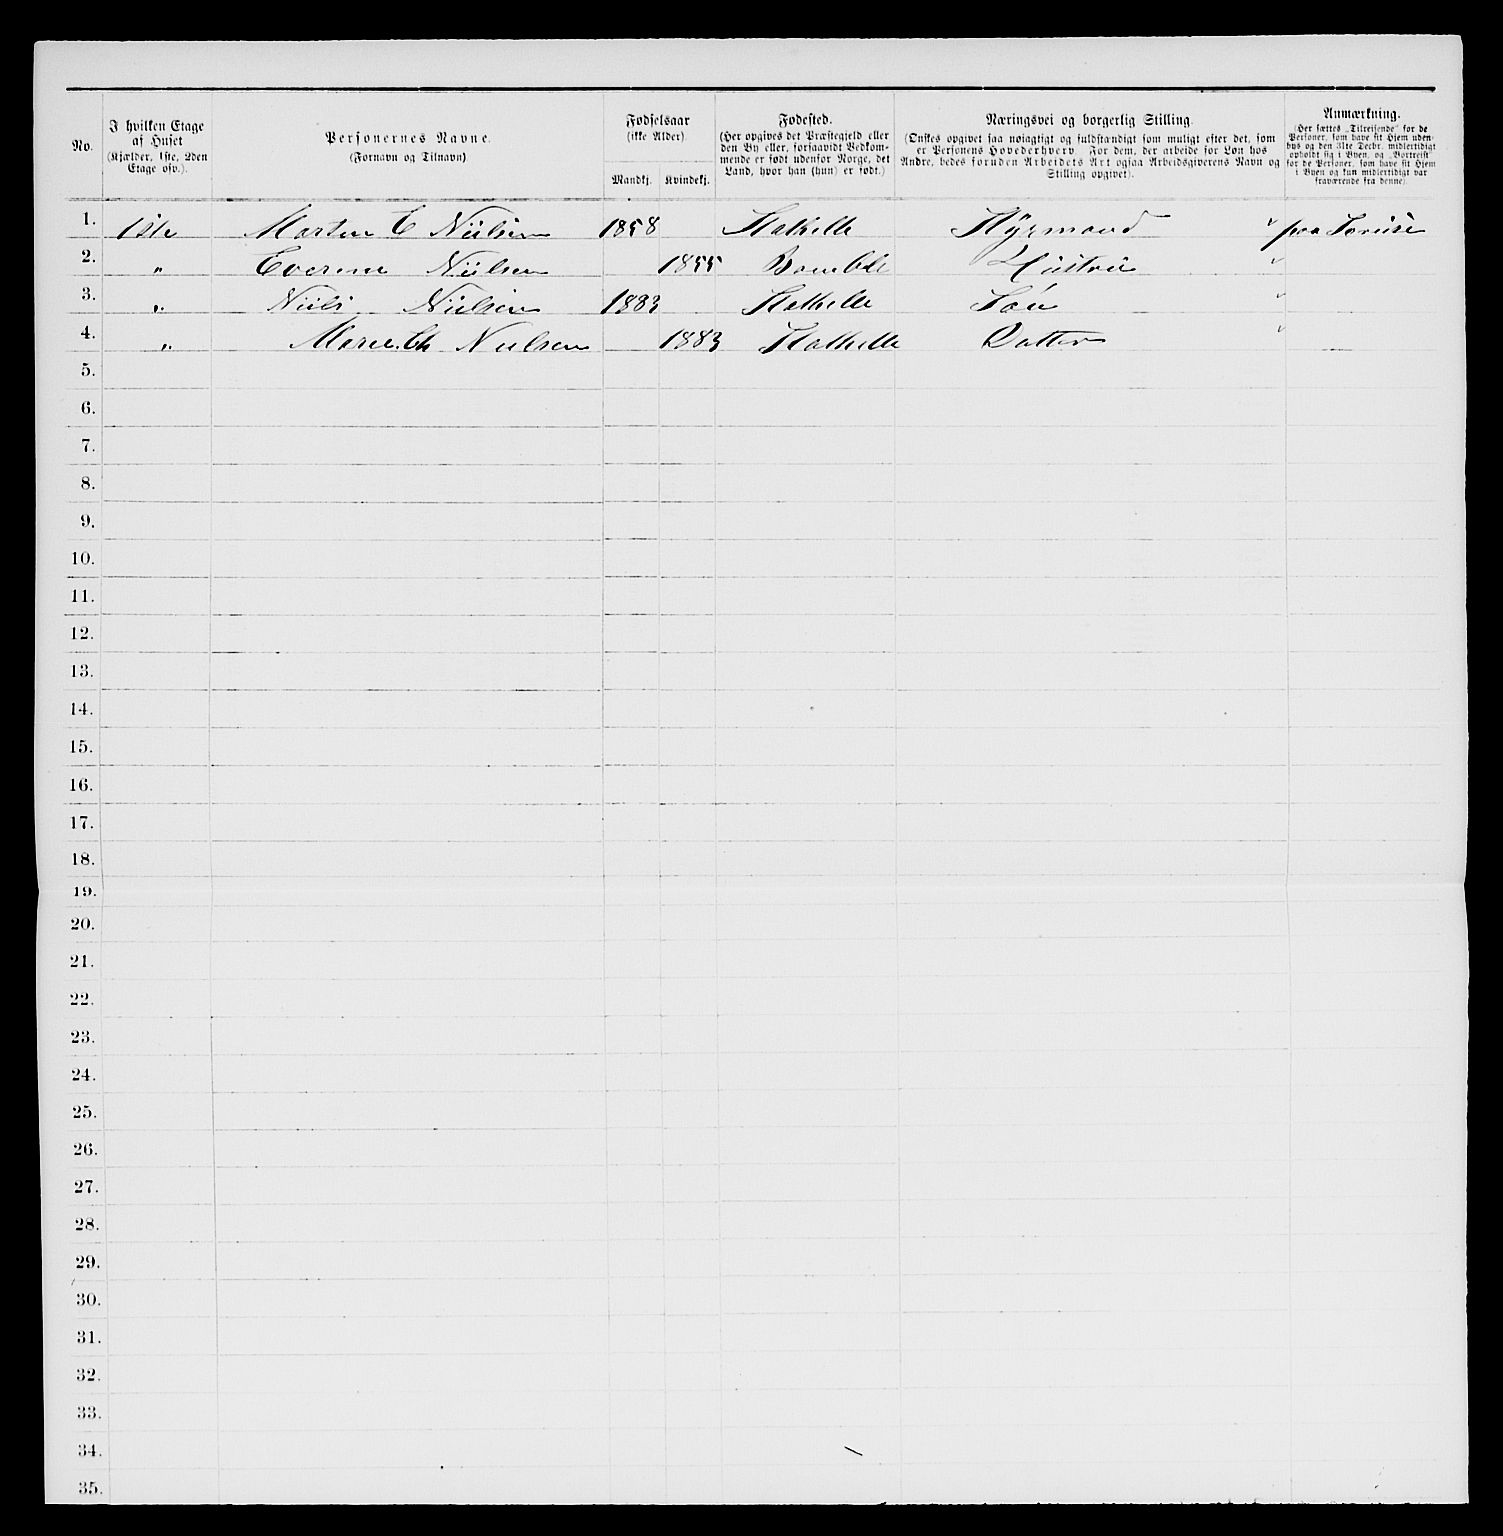 No.
I hvilken Etage
af Huset
(Kjælder, 1ste, 2den
Etage osv.).
Personernes Navne.
(Fornavn og Tilnavn)
Fødselsaar
(ikke Alder)
Mandkj. Kvindekj.
Fødested.
(Her opgives det Præstegjeld eller
den By eller, forsaavidt Vedkom-
mende er født udenfor Norge, det
Land, hvor han (hun) er født.)
Næringsvei og borgerlig Stilling.
(Ønskes opgivet saa nøiagtigt og fuldstændigt som muligt efter det, som
er Personens Hovederhverv. For dem, der arbeide for Løn hos
Andre, bedes foruden Arbeidets Art ogsaa Arbeidsgiverens Navn og
Stilling opgivet).
Anmærkning.
(Her sættes „Tilreisende" for de
Personer, som have sit Hjem uden-
bys og den 31te Decbr. midlertidigt
opholdt sig i Byen, og „Bortreist"
for de Personer, som have sit Hjem
i Byen og kun midlertidigt var
fraværende fra denne).
1. 1ste Morten C Nielsen 1858 Stathelle Styrmand " paa Søreise
2. " Everine Nielsen 1855 Bamble Hustru "
3. " Niels Nielsen 1883 Stathelle Søn "
4. " Marie Ch Nielsen 1883 Stathelle Datter "
5.
6.
7.
8.
9.
10.
11.
12.
13.
14.
15.
16.
17.
18.
19.
20.
21.
22.
23.
24.
25.
26.
27.
28.
29.
30.
31.
32.
33.
34.
35.